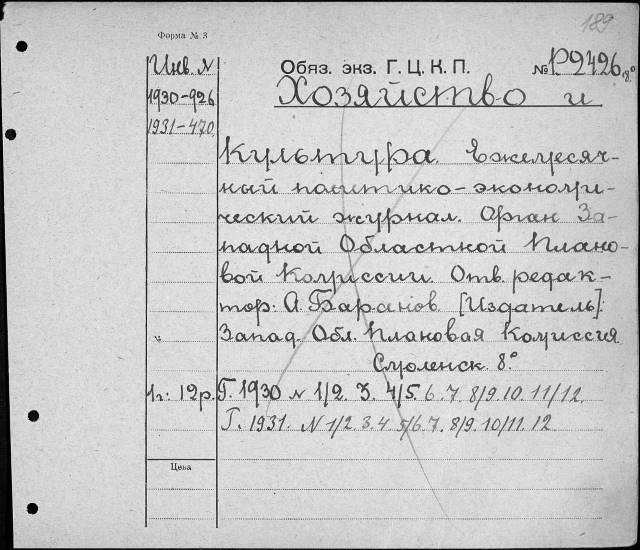 189
Форма № 3
Инв. №
Обяз. экз. Г. Ц. К. П. № Р2426
8°
1930-926
Хозяйство и
1931-470
Культура. Ежемесяч-
ный политико-экономи-
ческий журнал. Орган За-
падной Областной Плано-
вой Комиссии. Отв. редак-
тор: А. Баранов. [Издатель]:
Запад. Обл. Плановая Комиссия
Смоленск. 8°
1г: 12р. Г. 1930 № 1/2. 3. 4/5. 6. 7. 8/9. 10. 11/12.
Г. 1931. № 1/2. 3. 4. 5/6. 7. 8/9. 10/11. 12
Цена